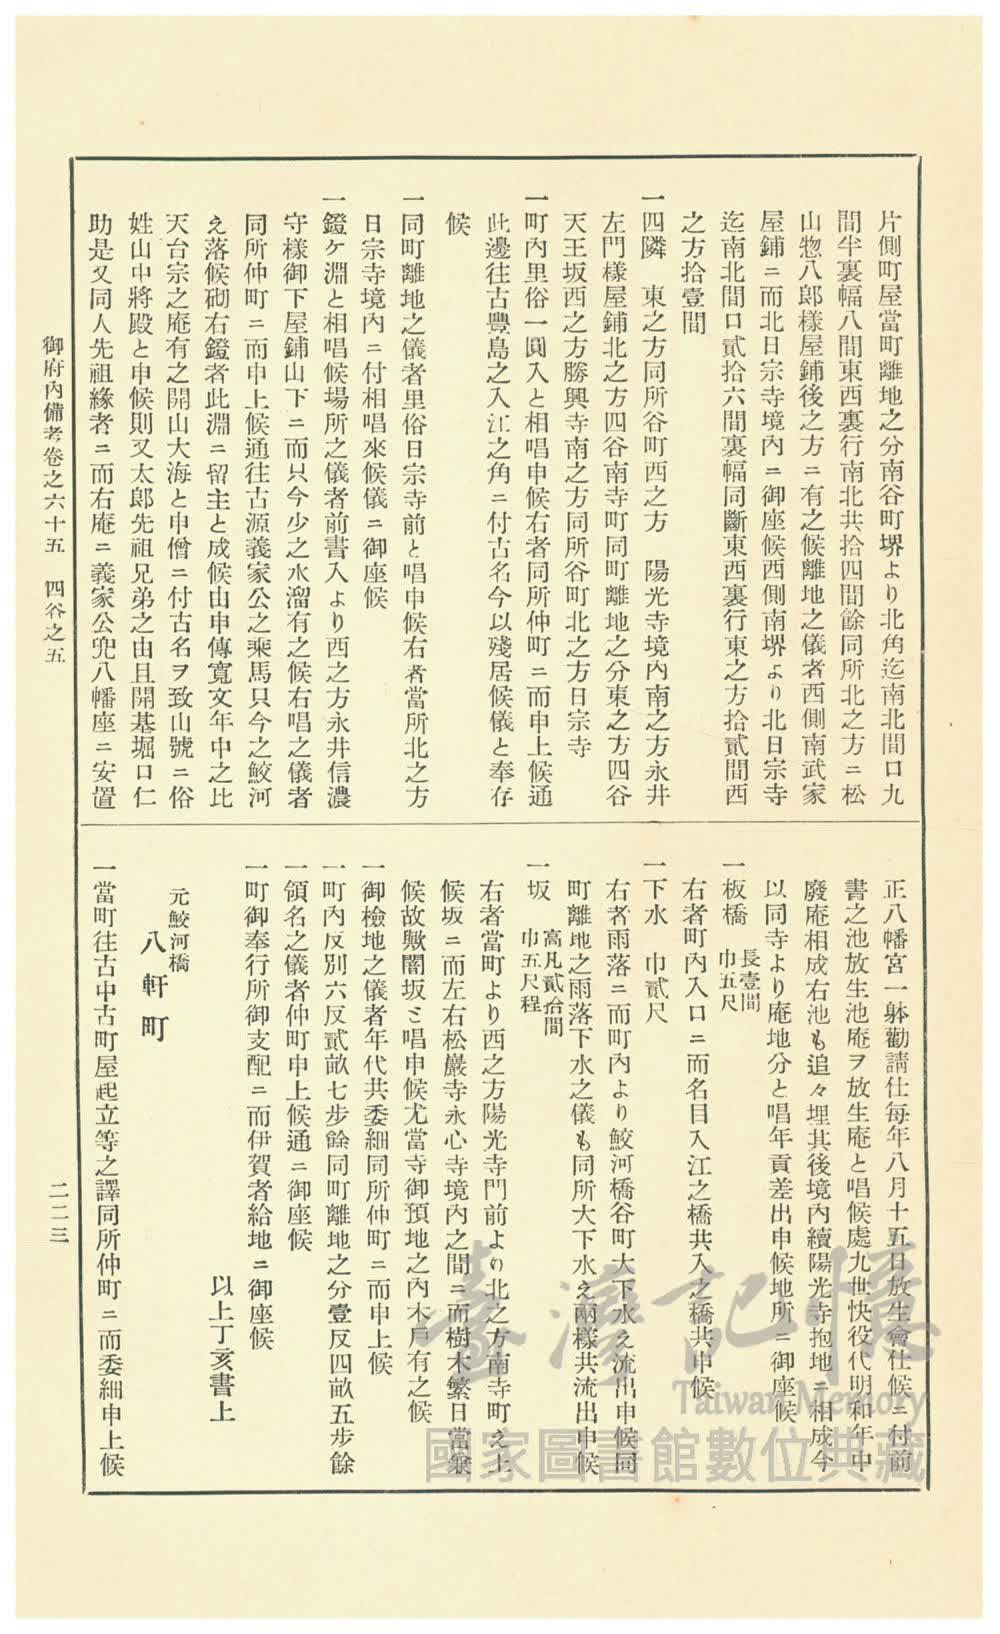 片側町屋當町離地之分南谷町堺より北角迄南北間口九
間半裏幅八間東西裏行南北共拾四間餘同所北之方ニ松
山惣八郎樣屋鋪後之方ニ有之候離地之儀者西側南武家
屋鋪ニ而北日宗寺境內ニ御座候西側南堺より北日宗寺
迄南北間口貳拾六間裏幅同斷東西裏行東之方拾貳間西
之方拾壹間
一四隣　東之方同所谷町西之方　陽光寺境內南之方永井
左門樣屋鋪北之方四谷南寺町同町離地之分東之方四谷
天王坂西之方勝興寺南之方同所谷町北之方日宗寺
一町內里俗一圓入と相唱申候右者同所仲町ニ而申上候通
此邊往古豐島之入江之角ニ付古名今以殘居候儀と奉存
候
一同町離地之儀者里俗日宗寺前と唱申候右者當所北之方
日宗寺境內ニ付相唱來候儀ニ御座候
一鐙ケ淵と相唱候場所之儀者前書入より西之方永井信濃
守樣御下屋鋪山下ニ而只今少之水溜有之候右唱之儀者
同所仲町ニ而申上候通往古源義家公之乘馬只今之鮫河
え落候砌右鐙者此淵ニ留主と成候由申傳寬文年中之比
天台宗之庵有之開山大海と申僧ニ付古名ヲ致山號ニ俗
姓山中將殿と申候則又太郎先祖兄弟之由且開基堀口仁
助是又同人先祖緣者ニ而右庵ニ義家公兜八幡座ニ安置
正八幡宮一躰勸請仕每年八月十五日放生會仕候ニ付前
書之池放生池庵ヲ放生庵と唱候處九世快役代明和年中
廢庵相成右池も追々埋其後境內續陽光寺抱地ニ相成今
以同寺より庵地分と唱年貢差出申候地所ニ御座候
一板橋　長壹間
巾五尺
右者町內入口ニ而名目入江之橋共入之橋共申候
一下水　巾貳尺
右者雨落ニ而町內より鮫河橋谷町大下水え流出申候同
町離地之雨落下水之儀も同所大下水え兩樣共流出申候
一坂　高凡貳拾間
巾五尺程
右者當町より西之方陽光寺門前より北之方南寺町え上
候坂ニ而左右松巖寺永心寺境內之間ニ而樹木繁日當兼
候故歟闇坂と唱申候尤當寺御預地之內木戶有之候
一御檢地之儀者年代共委細同所仲町ニ而申上候
一町內反別六反貳畝七步餘同町離地之分壹反四畝五步餘
一領名之儀者仲町申上候通ニ御座候
一町御奉行所御支配ニ而伊賀者給地ニ御座候
以上丁亥書上
元鮫河橋
八軒町
一當町往古中古町屋起立等之譯同所仲町ニ而委細申上候
御府內備考卷之六十五　四谷之五
二二三
臺灣記憶
Taiwan Memory
國家圖書館數位典藏